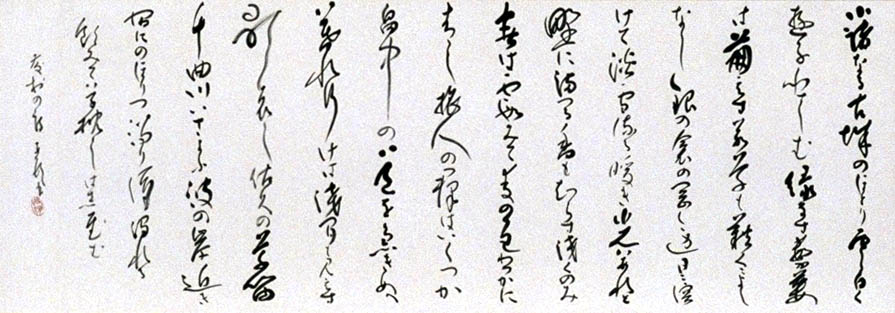 小諸なる古城のほとり雲白く
遊子悲しむ緑なす繁蔞
は萌えす若草も藉くによし
なし銀の衾の岡邊日に溶
けて淡雪流る暖き光はあれと
野に満つる香も知らす浅くのみ
春は霞みて麦の色わつかに
青し旅人の群はいくつか
畠中の道を急きぬ
暮れ行けは浅間も見えす
歌哀し佐久の草笛
千曲川いさよふ波の岸近き
宿にのほりつ濁り酒濁れる
飲みて草枕しはし慰む
藤村の詩